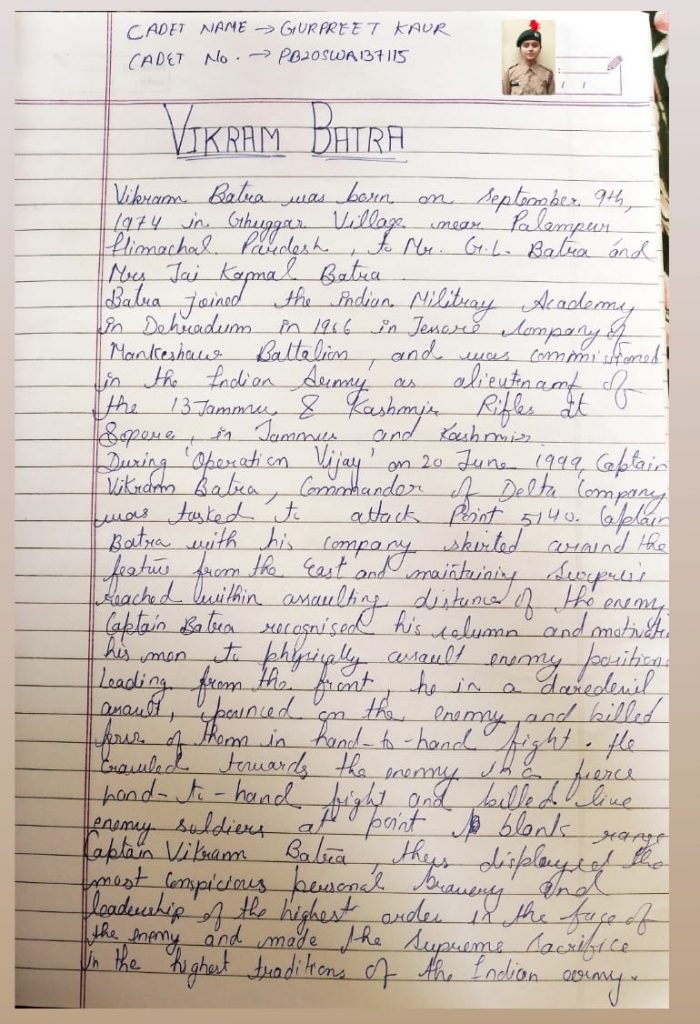 CADET NAME → GURPREET KAUR
CADET No. → PB20SWA137115
VIKRAM BATRA
Vikram Batra was born on September 9th,
1974 in Ghuggar Village near Palampur
Himachal Pardesh, to Mr. G.L. Batra and
Mrs Jai Kamal Batra
Batra joined the Indian Militray Academy
in Dehradumn in 1966 in Jenore Company of
Mankeshawr Battalion, and was commissioned
in the Indian Army as alieutenant of
the 13 Jammu & Kashmir Rifles at
Sopore, in Jammu and Kashmir.
During 'Operation Vijay' on 20 June 1999, Captain
Vikram Batra, Commander of Delta Company
was tasked to attack Point 5140. Captain
Batra with his company skirted around the
feature from the East and maintaining Surprise
reached within assaulting distance of the enemy.
Captain Batra recognised his column and motivate
his men to physically assault enemy position
Leading from the front, he in a daredevil
assault, pounced on the enemy and killed
four of them in hand-to-hand fight. He
crawled towards the enemy in a fierce
hand-to-hand fight and killed five
enemy soldiers at point blank range
Captain Vikram Batra, thus displayed the
most conspicious personal bravery and
leadership of the highest order in the face of
the enemy and made the supreme sacrifice
in the highest traditions of the Indian army.